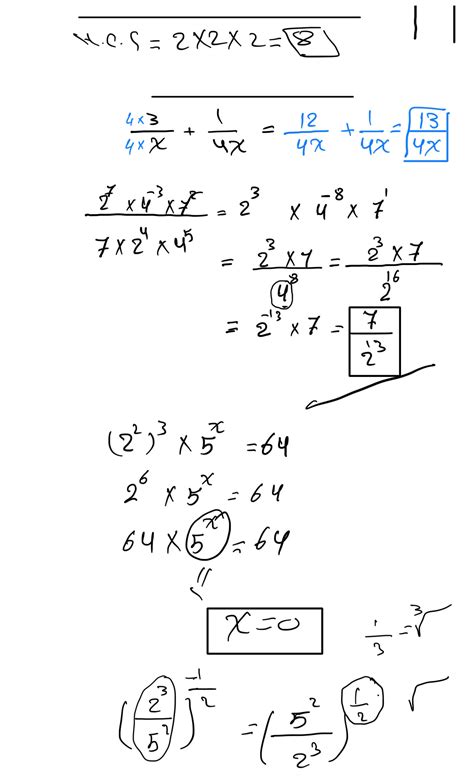 H.C.F = 2×2×2 = 8
4×3/4×x + 1/4x = 12/4x + 1/4x = 13/4x
2⁷ × 4⁻³ × 7² / 7 × 2⁴ × 4⁵ = 2³ × 4⁻⁸ × 7¹
= 2³ × 7 / 4⁸ = 2³ × 7 / 2¹⁶
= 2⁻¹³ × 7 = 7 / 2¹³
(2²)³ × 5ˣ = 64
2⁶ × 5ˣ = 64
64 × 5ˣ = 64
x = 0
1/3 = ³√
(2³/5²)^(-1/2) = (5²/2³)^(1/2) √